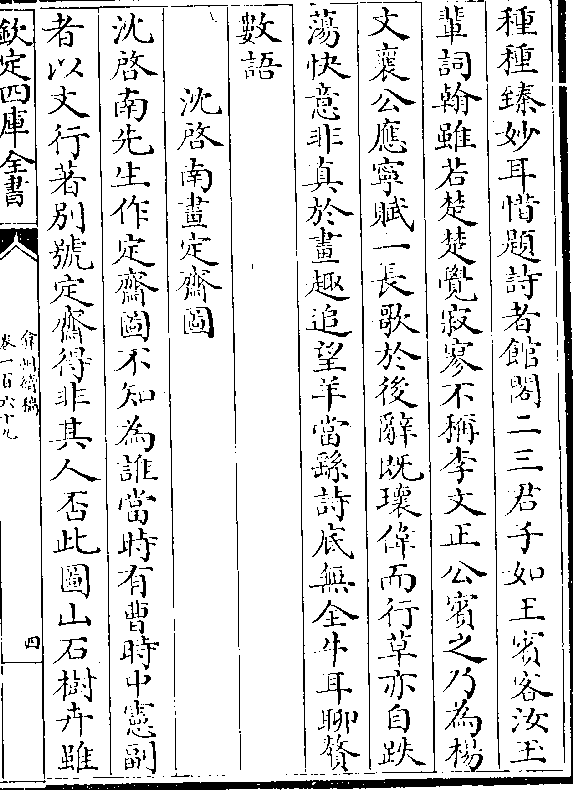 種種臻妙耳惜題詩者館閣二三君子如王賓客汝玉
輩詞翰雖若楚楚覺寂寥不稱李文正公賓之乃為楊
文襄公應寧賦一長歌於後辭既瓌偉而行草亦自跌
蕩快意非真於畫趣追望羊當繇詩底無全牛耳聊贅
數語
沈啓南畫定齋圖
沈啓南先生作定齋圖不知為誰當時有曹時中憲副
者以文行著別號定齋得非其人否此圖山石樹卉雖
欽定四庫全書
弇州續稿
卷一百六十九
四